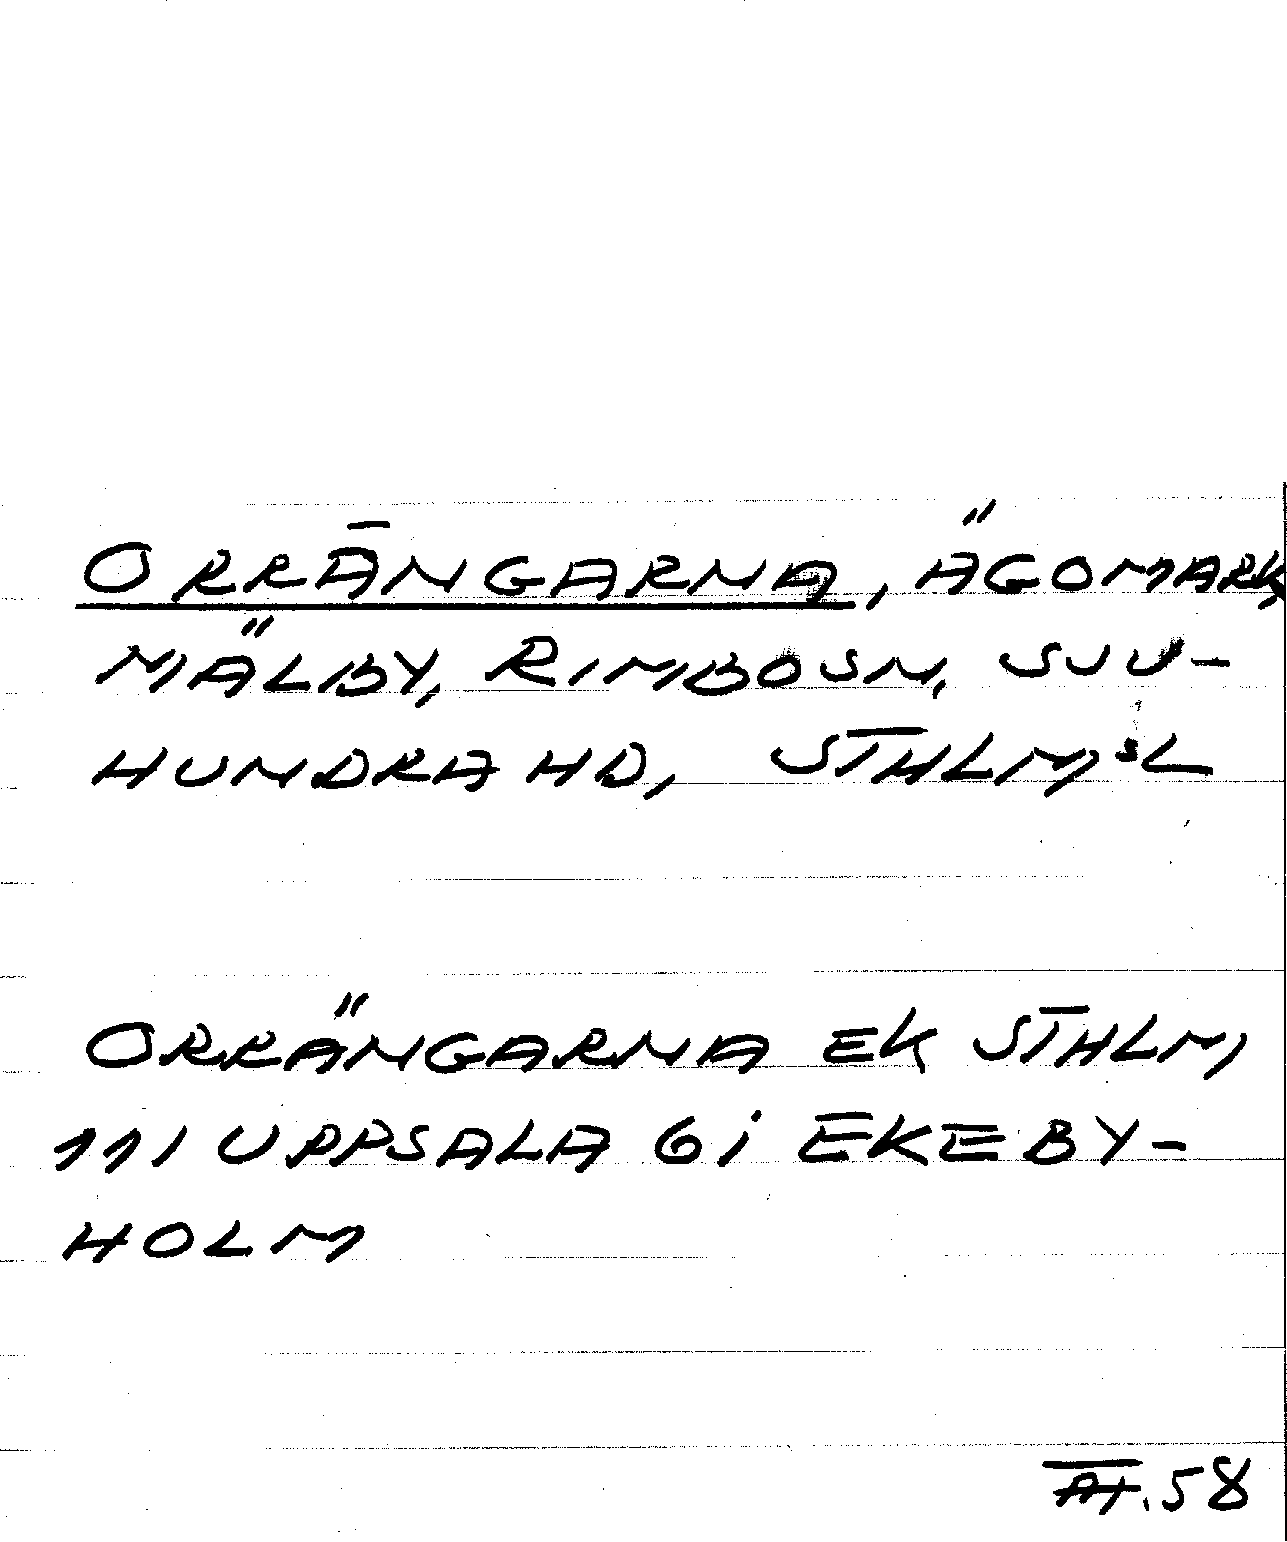 ORRÄNGARNA, ÄGOMARK,
MÄLBY, RIMBOSN, SJU-
HUNDRA HD, STHLM,SL
ORRÄNGARNA EK STHLM,
111 UPPSALA 6i EKEBY-
HOLM
AT.58